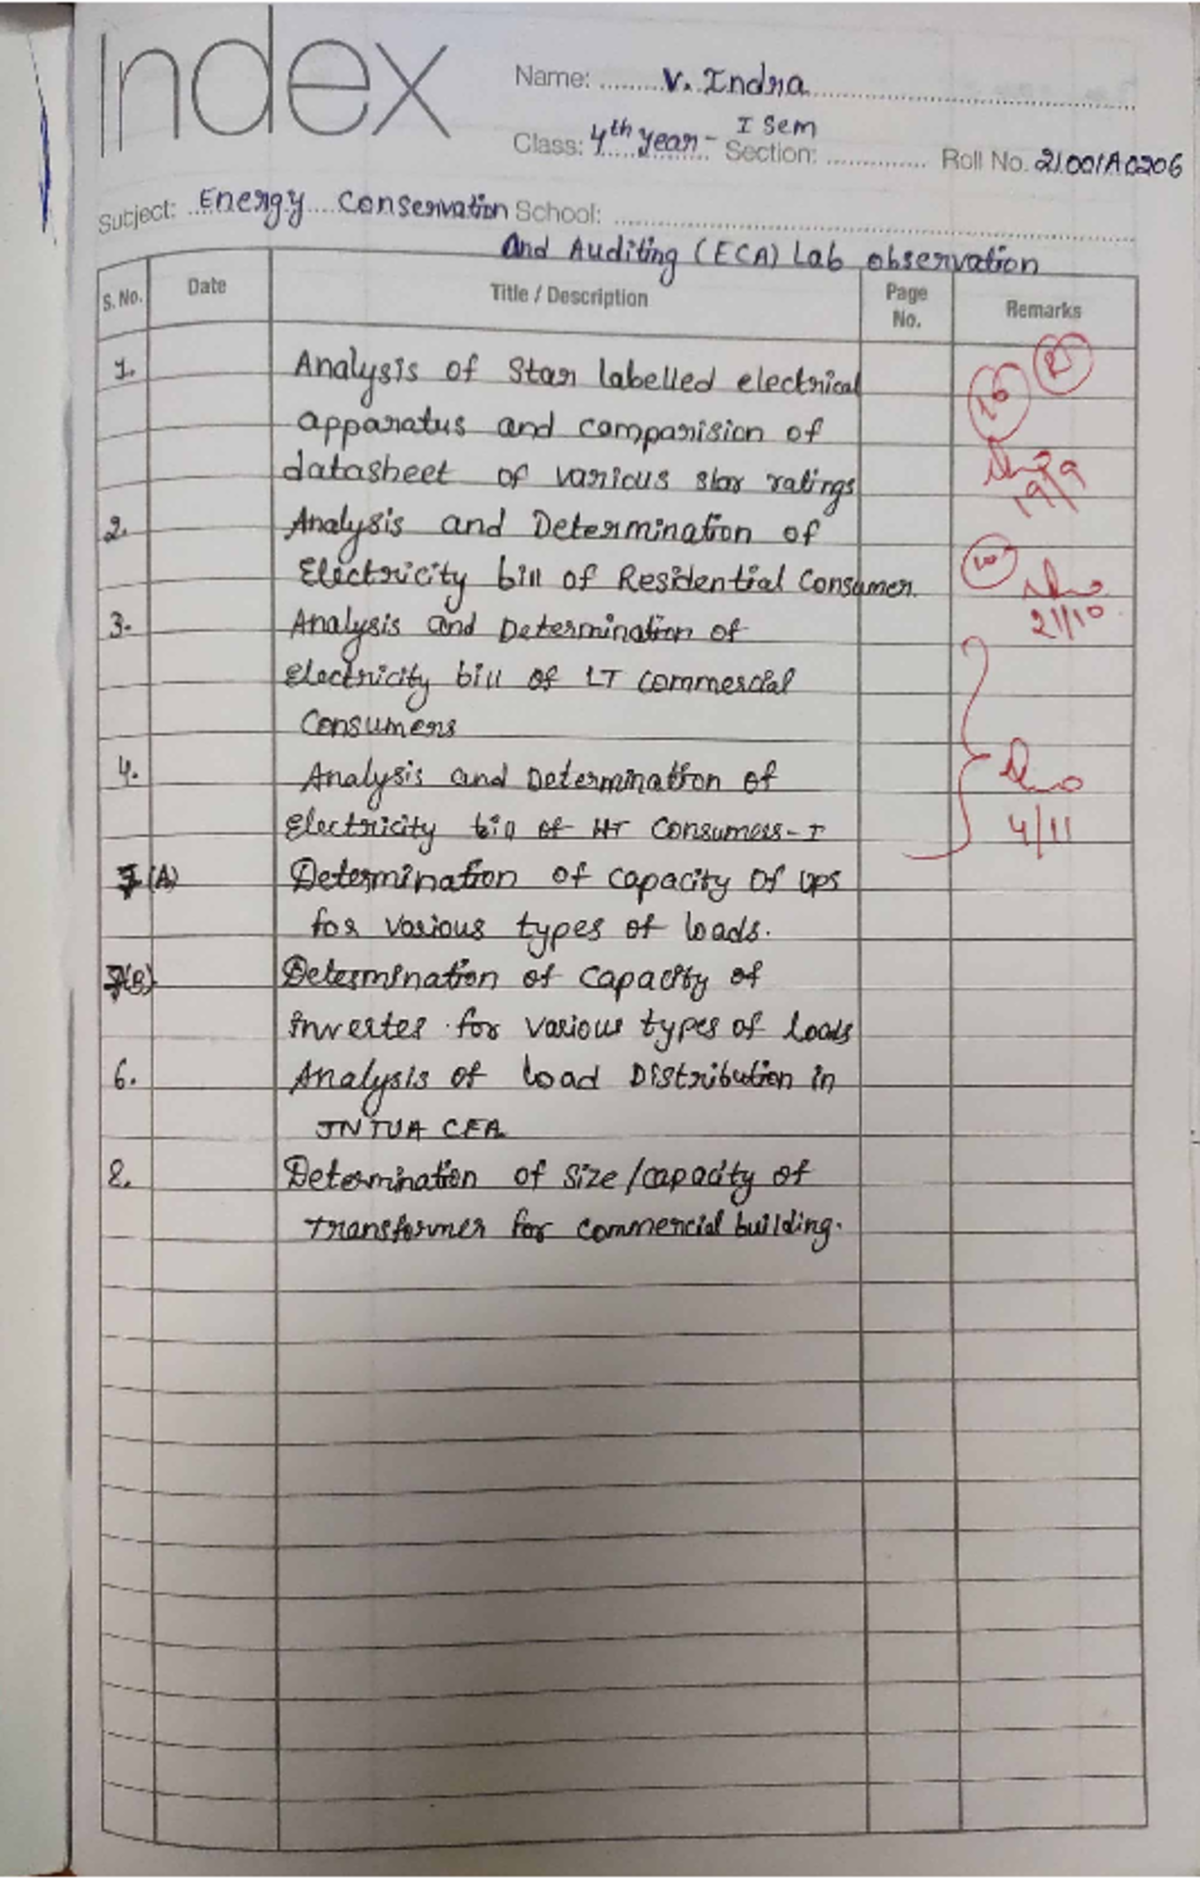 Index
Name: V. Indra
Class: 4th year - I Sem Section: Roll No. 21001A0206
Subject: Energy Conservation School:
And Auditing (ECA) Lab observation
S. No. Date Title / Description Page No. Remarks
1. Analysis of Star labelled electrical
apparatus and comparision of
datasheet of various star ratings
19/9
2. Analysis and Determination of
Electricity bill of Residential Consumer.
21/10
3. Analysis and Determination of
Electricity bill of LT commercial
Consumers
4. Analysis and Determination of
Electricity bill of HT Consumers-I
4/11
(A) Determination of capacity of ups
for various types of loads.
(B) Determination of capacity of
inverter for various types of loads
6. Analysis of load Distribution in
JNTUA CEA
8. Determination of size/capacity of
transformer for commercial building.